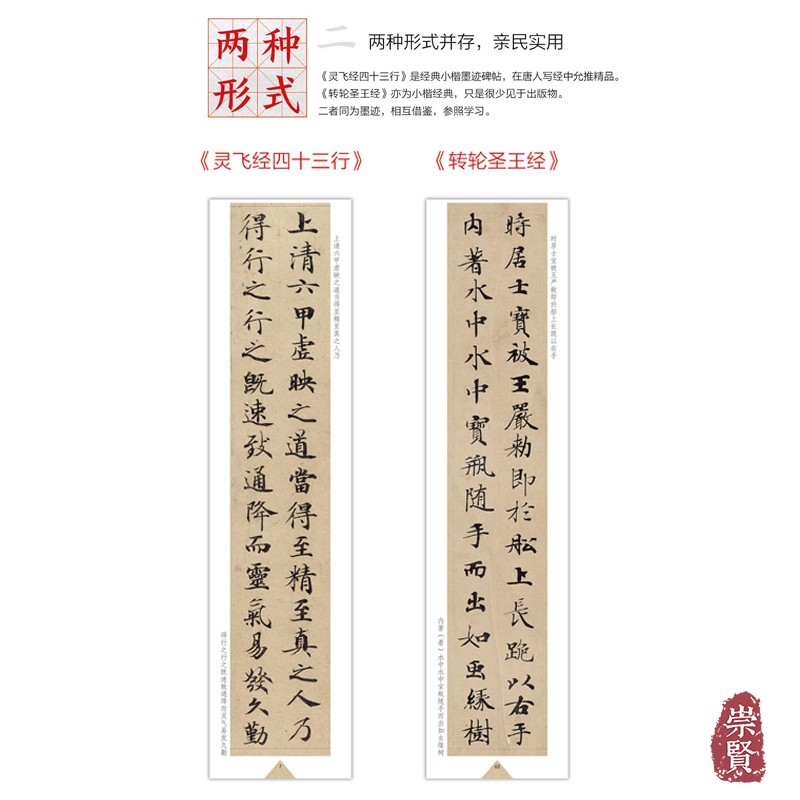 两种
形式
二 两种形式并存，亲民实用
《灵飞经四十三行》是经典小楷墨迹碑帖，在唐人写经中允推精品。
《转轮圣王经》亦为小楷经典，只是很少见于出版物。
二者同为墨迹，相互借鉴，参照学习。
《灵飞经四十三行》
《转轮圣王经》
上清六甲虚映之道当得至精至真之人乃
上清六甲虛映之道當得至精至真之人乃
得行之行之既速致通降而靈氣易發久勤
得行之行之既速致通降而灵气易发久勤
7
时居士宝被王严敕即于船上长跪以右手
時居士寶被王嚴勑即於舩上長跪以右手
内著水中水中寶瓶随手而出如虫緣樹
内著（着）水中水中宝瓶随手而出如虫缘树
60
崇賢